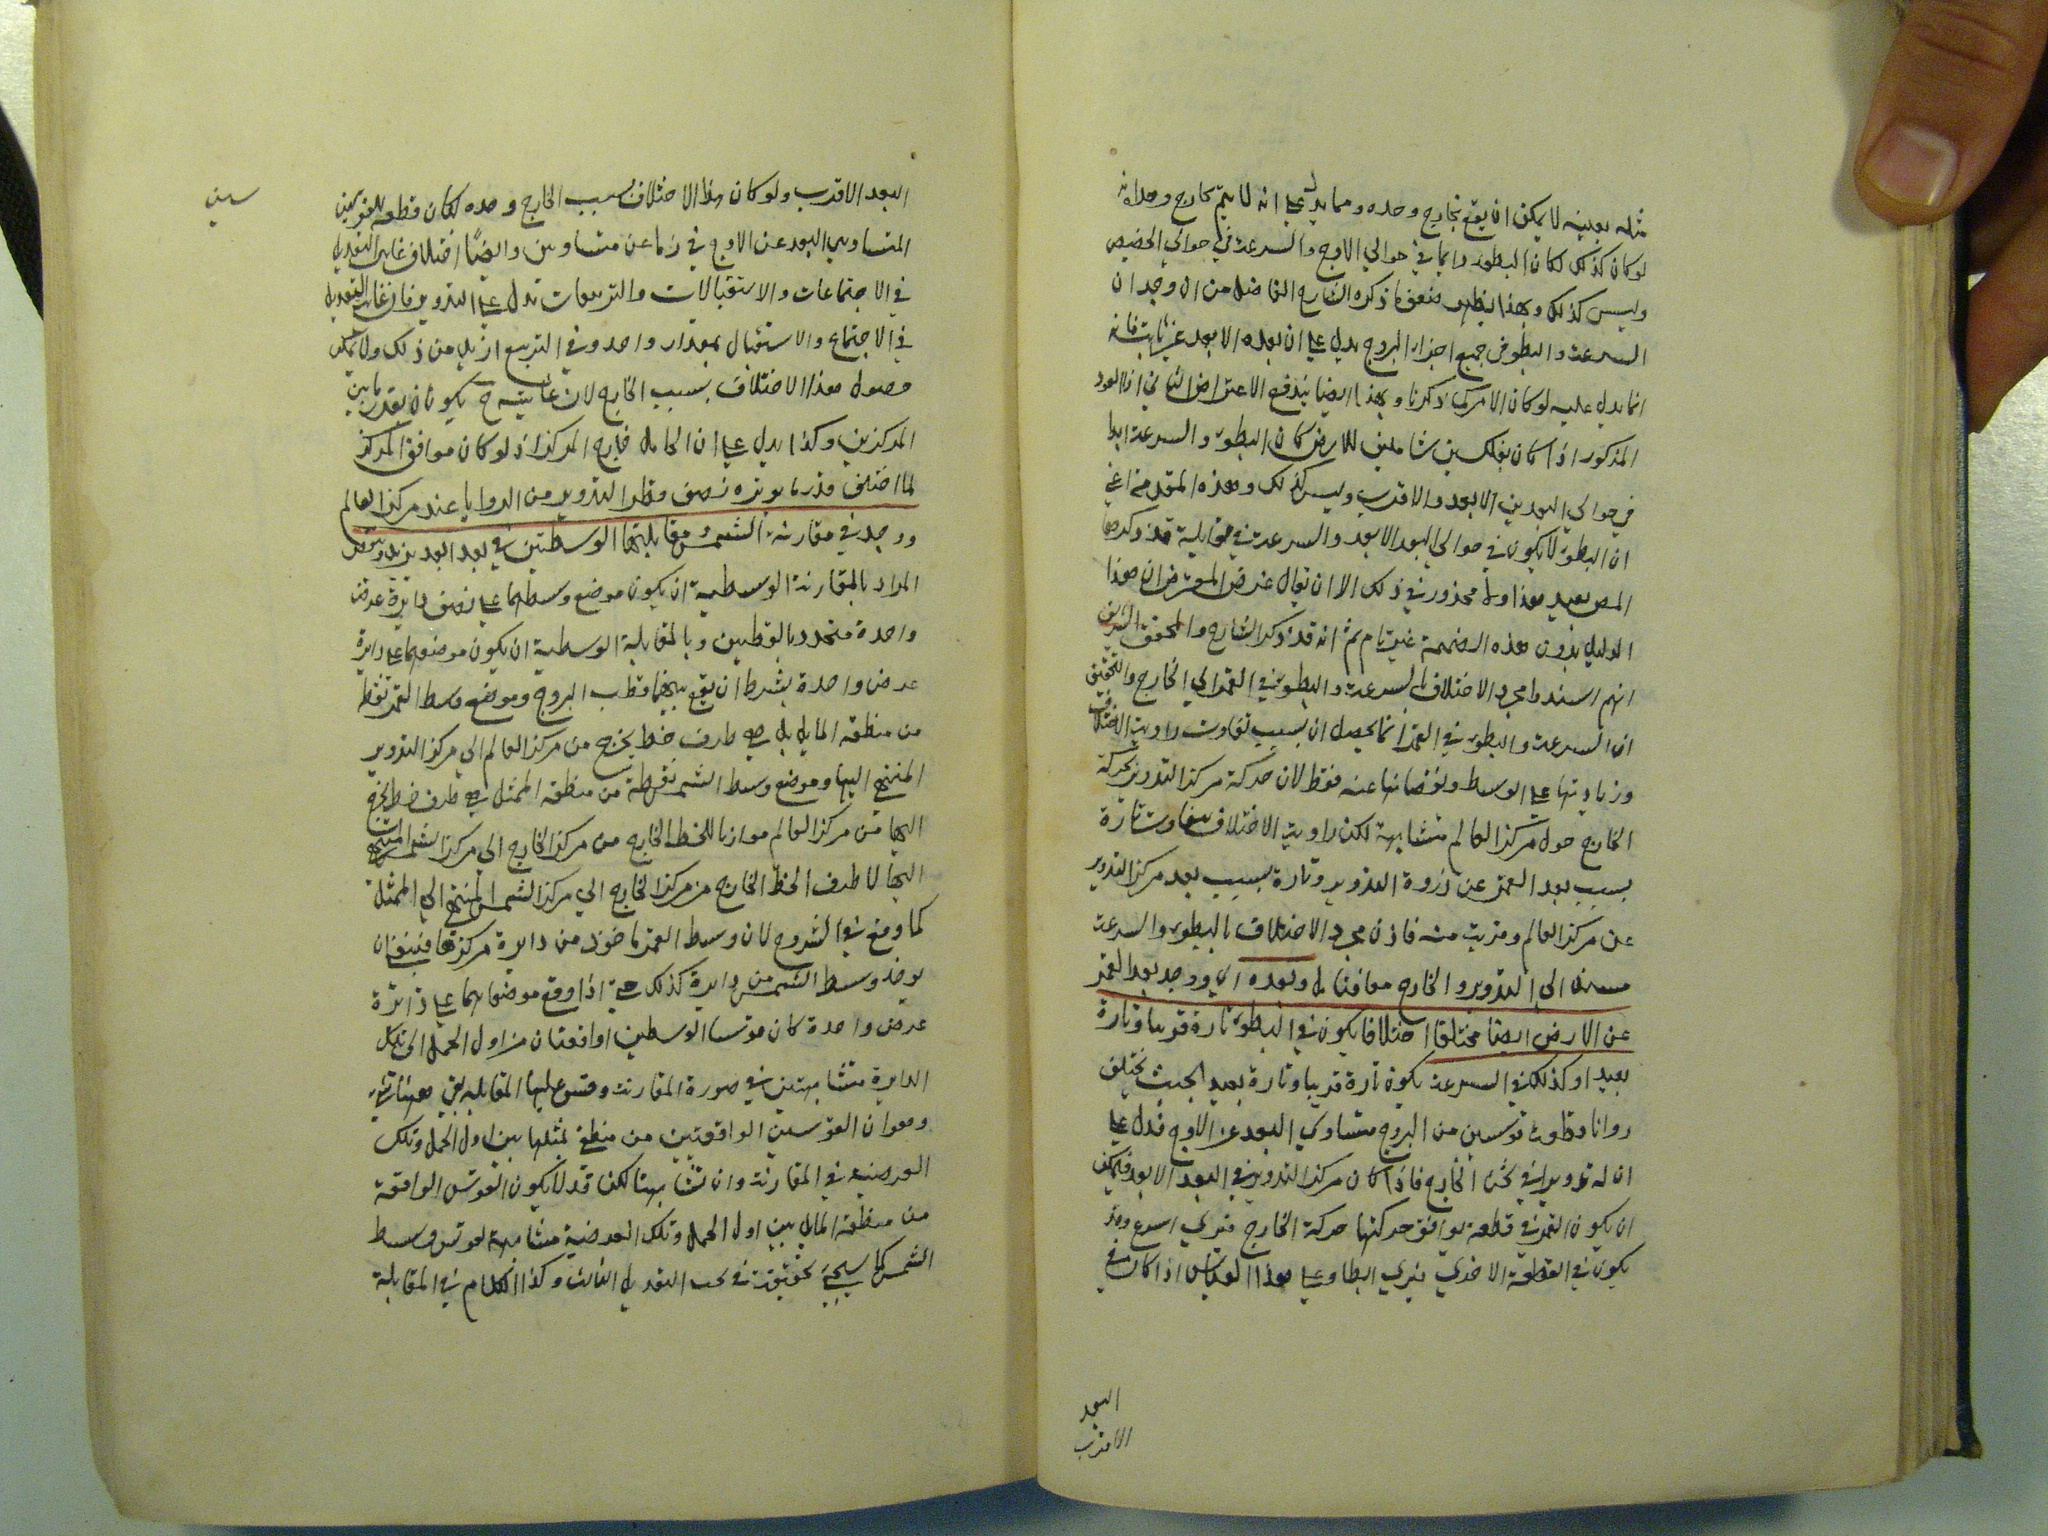 مثله بعينه لا يمكن ان يقع بخارج وحده ومما يدل على انه لا يتم بخارج وحده انه
لو كان كذلك لكان البطوء دايما في حوالي الاوج والسرعة في حوالي الحضيض
وليس كذلك وبهذا يظهر ضعف ما ذكره الشارح الفاضل من ان وجدان
السرعة والبطوء في جميع اجزاء البروج يدل على ان بعده الابعد غير ثابت فانه
انما يدل عليه لو كان الامر كما ذكرنا وبهذا ايضا يندفع الاعتراض الثاني اذ
المذكور اذا كان بفلكين شاملين للارض كان البطوء والسرعة ابدا
في حوالي البعدين الابعد والاقرب وليس كذلك وهذه المقدمة اعني
ان البطوء لا يكون في حوالي البعد الابعد والسرعة في مقابلية قد ذكرها
المص بعيد هذا ولا محذور في ذلك الا ان يقال غرض المعترض ان هذا
الدليل بدون هذه الضميمة غير تام ثم انه قد ذكر الشارح والمحقق الشريف
انهم اسندوا مجرد الاختلاف بالسرعة والبطوء في القمر الي الخارج والتحقيق
ان السرعة والبطوء في القمر انما يحصلان بسبب تفاوت زاوية الاختلاف
وزيادتها على الوسط ونقصانها عنه فقط لان حركة مركز التدوير بحركة
الخارج حول مركز العالم متشابهة لكن زاوية الاختلاف يتفاوت تارة
بسبب بعد القمر عن ذروة التدوير وتارة بسبب بعد مركز التدوير
عن مركز العالم وقربه منه فاذن مجرد الاختلاف بالبطوء والسرعة
مستند الى التدوير والخارج معا فتامل وبعده اي ووجد بعد القمر
عن الارض ايضا مختلفا اختلافا يكون في البطوء تارة قريبا وتارة
بعيدا وكذلك في السرعة يكون تارة قريبا وتارة بعيدا بحيث يختلف
زمانا قطعه قوسين من البروج متساوي البعد عن الاوج فدل على
ان له تدويرا في ثخن الخارج فاذا كان مركز التدوير في البعد الابعد فيمكن
ان يكون القمر في قطعة يوافق حركتها حركة الخارج فيري اسرع وقد
يكون في القطعة الاخري فيري ابطا وعلى هذا القياس اذا كان في
البعد
الاقرب
البعد الاقرب ولو كان هذا الاختلاف بسبب الخارج وحده لكان قطعه للقوسين
المتساويي البعد عن الاوج في زماعن متساويين وايضا اختلاف غاية التعديل
في الاجتماعات والاستقبالات والتربيعات تدل على التدوير فان غاية التعديل
في الاجتماع والاستقبال بمقدار واحد وفي التربيع ازيد من ذلك ولا يمكن
حصول هذا الاختلاف بسبب الخارج لان غايته ح يكون بقدر ما بين
المركزين وكذا يدل على ان الحامل خارج المركز اذ لو كان موافق المركز
لما اختلف قدر ما يوتره نصف قطر التدوير من الزوايا عند مركز العالم
ووجد في مقارنة الشمس ومقابليتها الوسطتين في بعد ابعد
المراد بالمقارنة الوسطية ان يكون موضع وسطهما على نصف دايرة عرض
واحدة متحدد بالقطبين وبالمقابلية الوسطية ان يكون موضعهما على دايرة
عرض واحدة بشرط ان يقع بينهما قطب البروج وموضع وسط القمر نقطة
من منطقة المايل بل هي طرف خط يخرج من مركز العالم الي مركز التدوير
المنتهي اليها وموضع وسط الشمس نقطة من منطقة الممثل هي طرف خط يخرج
اليها من مركز العالم موازيا للخط الخارج من مركز الخارج الي مركز الشمس المنتهي
اليها لا طرف الخط الخارج من مركز الخارج الي مركز الشمس المنتهي الي الممثل
كما وقع في الشروح لان وسط القمر ماخوذ من دايرة مركزها فينبغي ان
يوخذ وسط الشمس من دايرة كذلك حتى اذا وقع موضعاهما على دايرة
عرض واحدة كان قوسا الوسطين اواقعتان من اول الحمل الى تلك
الدايرة متشابهتين في صورة المقارنة وقس عليها المقابلة بقي هنا شيء
وهو ان القوسين الواقعتين من منطقتي ممثليها بين اول الحمل وتلك
العرضية في المقارنة وان تشابهتا لكن قد لا يكون القوس الواقعة
من منطقة المايل بين اول الحمل وتلك العرضية مشابهة لقوس وسط
الشمس كما سيجئ تحقيقه في بحث التعديل الثالث وكذا الكلام في المقابلة